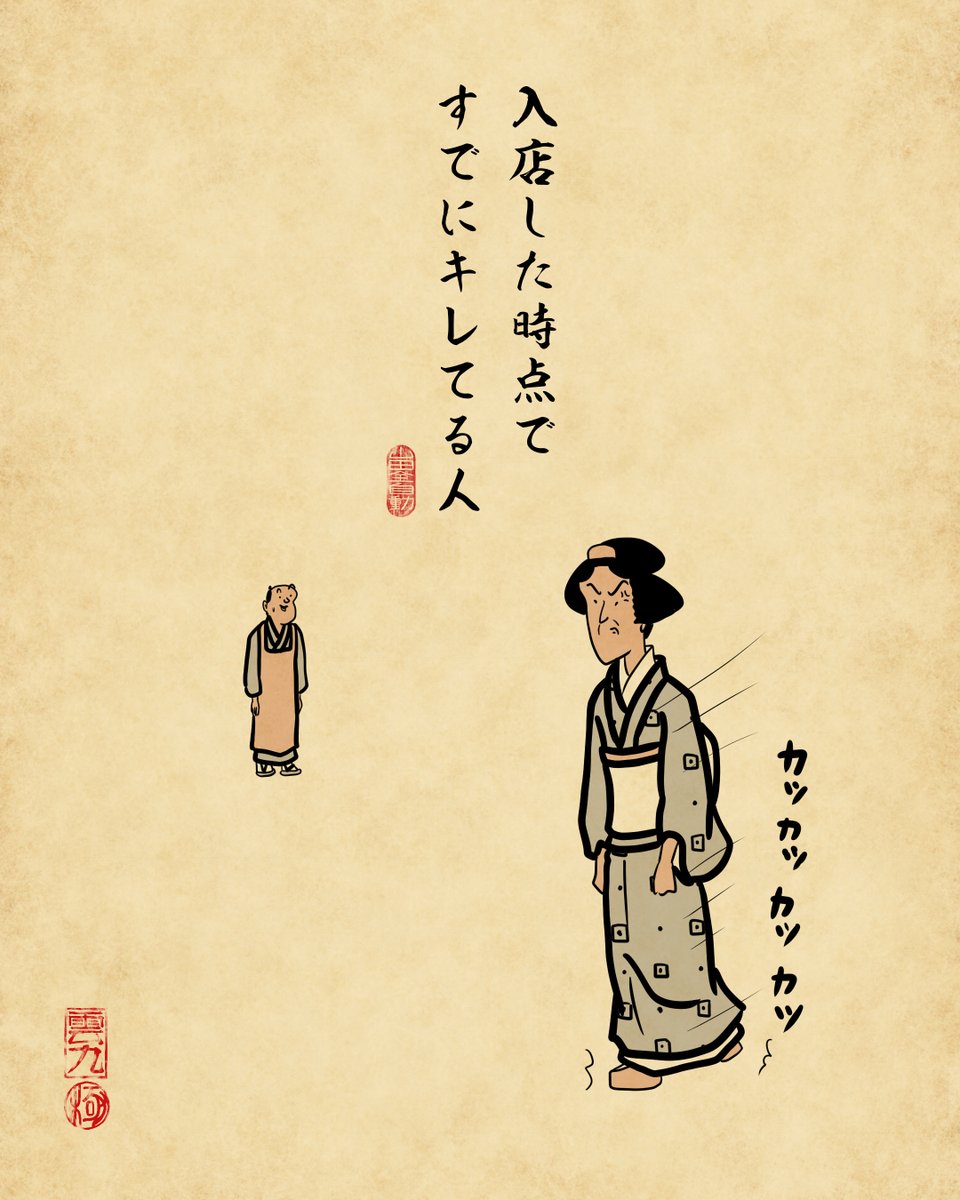 入店した時点で
すでにキレてる人
カッカッカッカッ
雲九
極